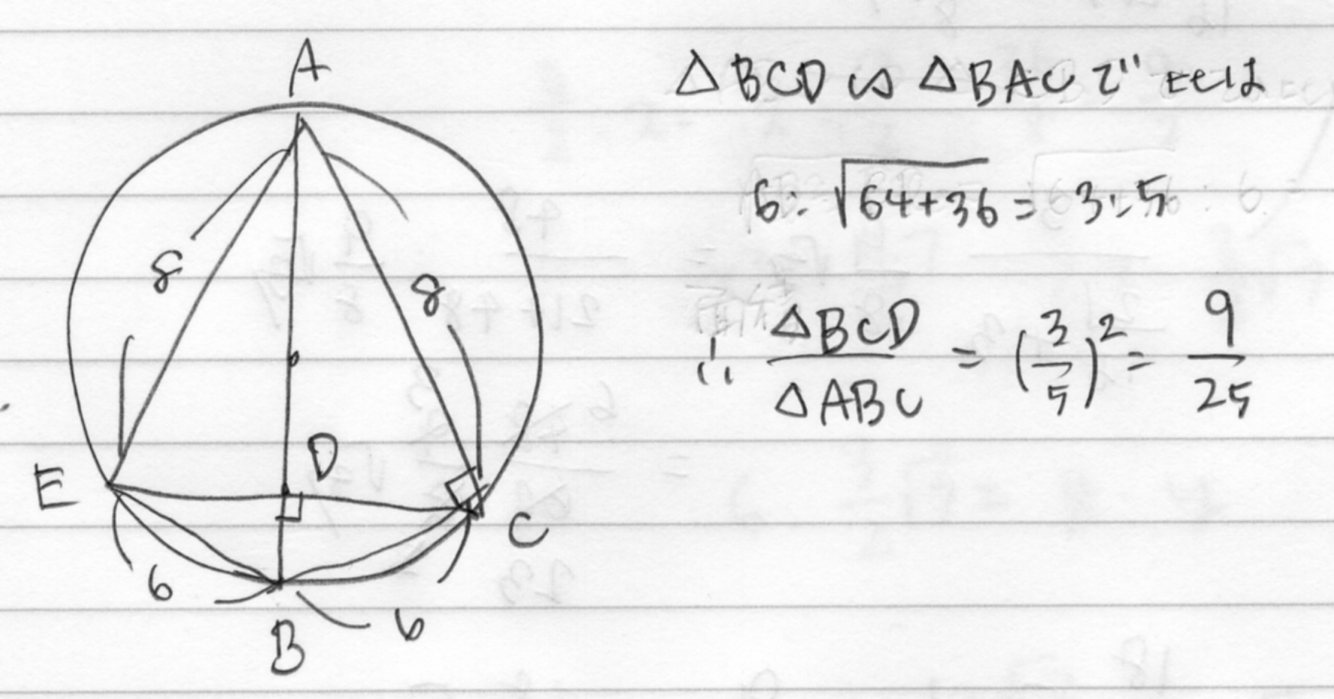 A
8
8
D
E
C
6
B
6
△BCD ∽ △BACで 比は
6:√64+36 = 3:5
∴ △BCD/△ABC = (3/5)² = 9/25